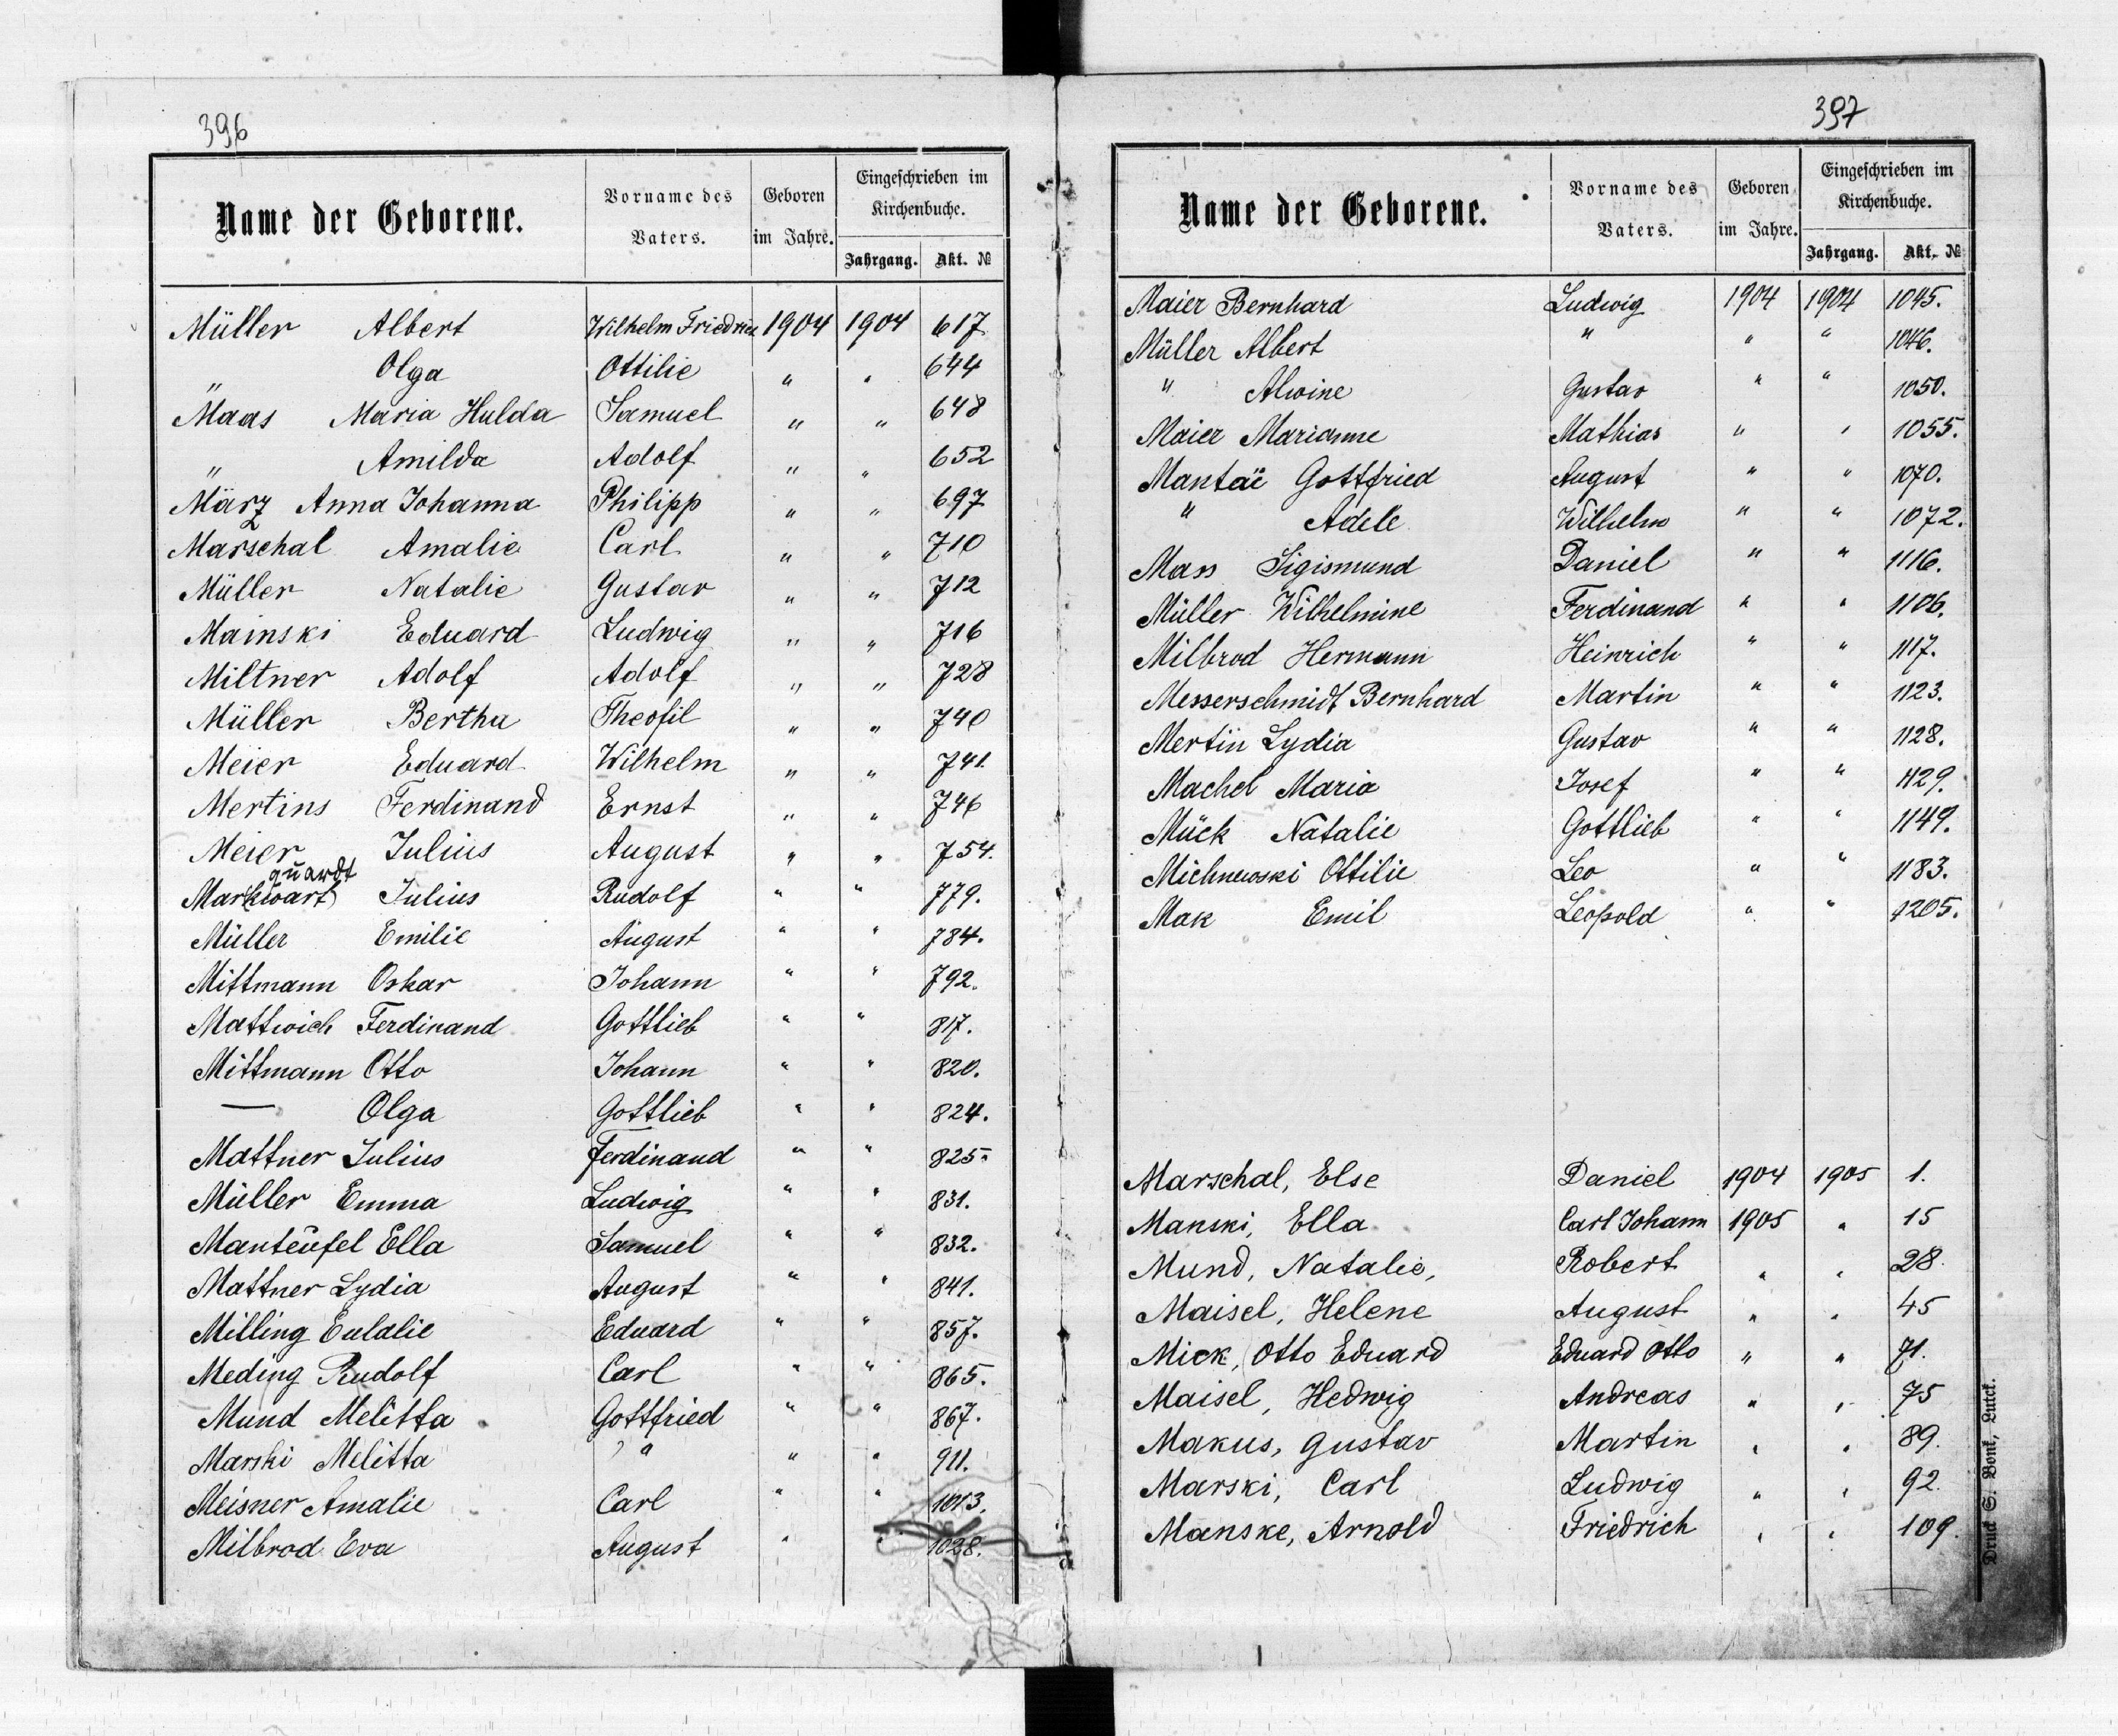 396
Name der Geborene. Vorname des Vaters. Geboren im Jahre. Eingeschrieben im Kirchenbuche.
Jahrgang. Akt. №
Müller Albert Wilhelm Friedrich 1904 1904 617
" Olga Ottilie " " 644
Maas Maria Hulda Samuel " " 648
" Amilda Adolf " " 652
März Anna Johanna Philipp " " 697
Marschal Amalie Carl " " 710
Müller Natalie Gustav " " 712
Mainski Eduard Ludwig " " 716
Miltner Adolf Adolf " " 728
Müller Bertha Theofil " " 740
Meier Eduard Wilhelm " " 741.
Mertins Ferdinand Ernst " " 746
Meier Julius August " " 754.
quardt
Mar(kwart) Julius Rudolf " " 779.
Müller Emilie August " " 784.
Mittmann Oskar Johann " " 792.
Mattwich Ferdinand Gottlieb " " 817.
Mittmann Otto Johann " " 820.
— Olga Gottlieb " " 824.
Mattner Julius Ferdinand " " 825.
Müller Emma Ludwig " " 831.
Manteufel Ella Samuel " " 832.
Mattner Lydia August " " 841.
Milling Eulalie Eduard " " 857.
Meding Rudolf Carl " " 865.
Mund Melitta Gottfried " " 867.
Marski Melitta " " " 911.
Meisner Amalie Carl " " 1013.
Milbrod Eva August " " 1028.
397
Name der Geborene. Vorname des Vaters. Geboren im Jahre. Eingeschrieben im Kirchenbuche.
Jahrgang. Akt. №
Maier Bernhard Ludwig 1904 1904 1045.
Müller Albert " " " 1046.
" Alwine Gustav " " 1050.
Maier Marianne Mathias " " 1055.
Mantaï Gottfried August " " 1070.
" Adele Wilhelm " " 1072.
Mass Sigismund Daniel " " 1116.
Müller Wilhelmine Ferdinand " " 1106.
Milbrod Hermann Heinrich " " 1117.
Messerschmidt Bernhard Martin " " 1123.
Mertin Lydia Gustav " " 1128.
Machel Maria Josef " " 1129.
Mück Natalie Gottlieb " " 1149.
Michnewski Ottilie Leo " " 1183.
Mak Emil Leopold " " 1205.
Marschal, Else Daniel 1904 1905 1.
Manski, Ella Carl Johann 1905 " 15
Mund, Natalie, Robert " " 28.
Maisel, Helene August " " 45
Mick, Otto Eduard Eduard Otto " " 71.
Maisel, Hedwig Andreas " " 75
Makus, Gustav Martin " " 89.
Marski, Carl Ludwig " " 92.
Manske, Arnold Friedrich " " 109.
Druck S. Bonk, Lutck.